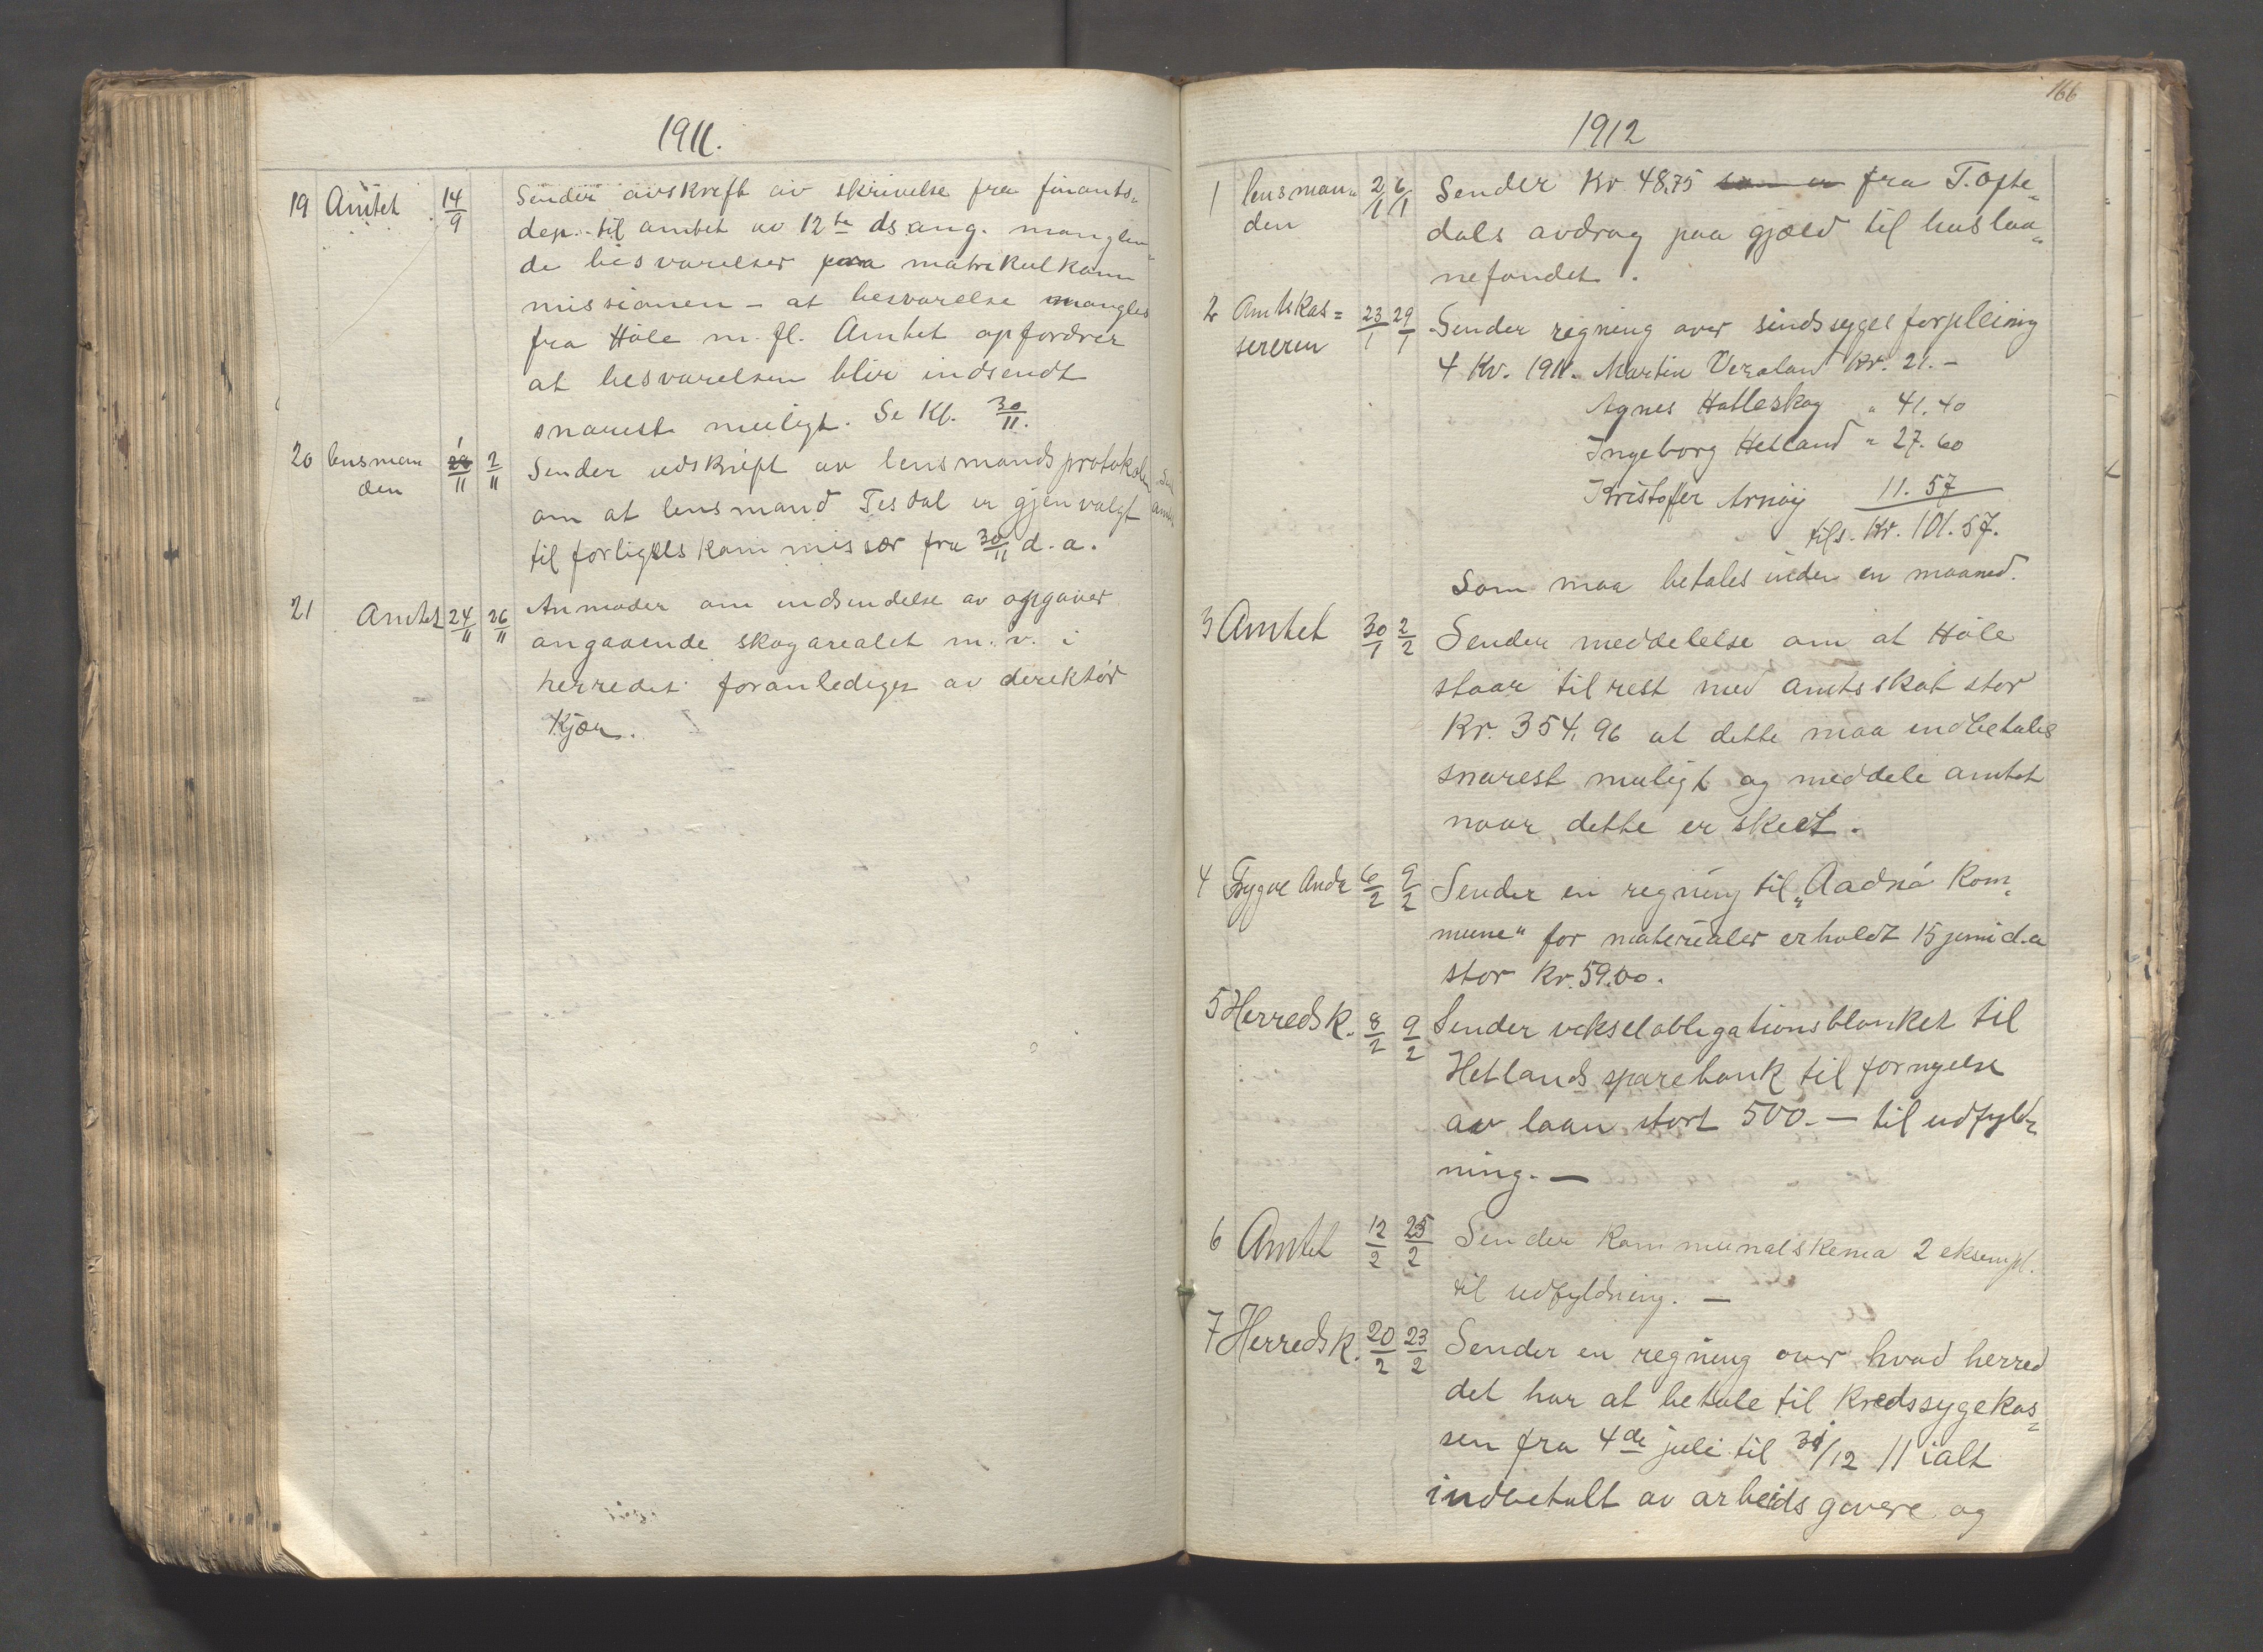 1911.
19 Amtet 14/9 Sender avskreft av skrivelse fra finants-
dep. til amtet av 12te ds. ang. manglen-
de besvarelser fra matrikulkom
missionen - at besvarelse mangles
fra Høle m. fl. Amtet opfordrer
at besvarelsen blir indsendt
snareste muligt. Se Kf. 30/11.
20 lensman 1/11 2/11 Sender udskrift av lensmandsprotokolen
den om at lensmand Tesdal er gjenvalgt
til forligelskommissær fra 30/11 d.a.
21 Amtet 24/11 26/11 Anmoder om indsendelse av opgaver
angaaende skogarealet m.v. i
herredet foranlediget av derektør
Kjær.
166
1912
1 lensman- 2/1 6/1 Sender Kr 48.75 som er fra T. Ofte-
den dals avdrag paa gjæld til huslaa-
nefondet.
2 Amtskas= 23/1 29/1 Sender regning over sindssyges forpleining
sereren 4 Kv. 1911. Martin Veraland Kr. 21.-
Agnes Halleskog " 41.40
Ingeborg Helland " 27.60
Kristoffer Arnøy 11.57
tils. Kr. 101.57.
Som maa betales inden en maaned.
3 Amtet 30/1 2/2 Sender meddelelse om at Høle
staar til rest med amtsskat stor
Kr. 354.96 at dette maa indbetales
snarest muligt og meddele amtet
naar dette er skeet.
4 Trygve Anda 6/2 9/2 Sender en regning til "Aadnø Kom-
mune" for materialer erholdt 15 juni d.a
stor Kr. 59.00.
5 Herredsk. 8/2 9/2 Sender vekselobligationsblanket til
Hetlands sparebank til fornyelse
av laan stort 500.- til udfyld-
ning. -
6 Amtet 12/2 25/2 Sender Kommunalskema 2 eksempl.
til udfyldning. -
7 Herredsk. 20/2 23/2 Sender en regning over hvad herred
det har at betale til Kredssygekas-
sen fra 4de juli til 31/12 11 ialt
indbetalt av arbeidsgavere og